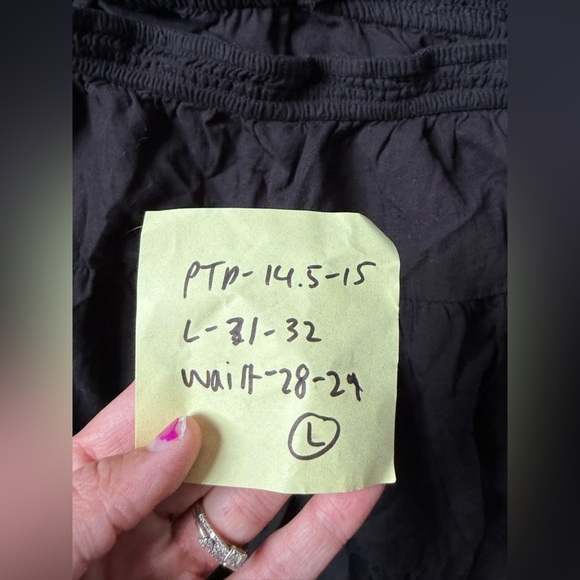 PTP-14.5-15
L-31-32
Waist-28-29
L